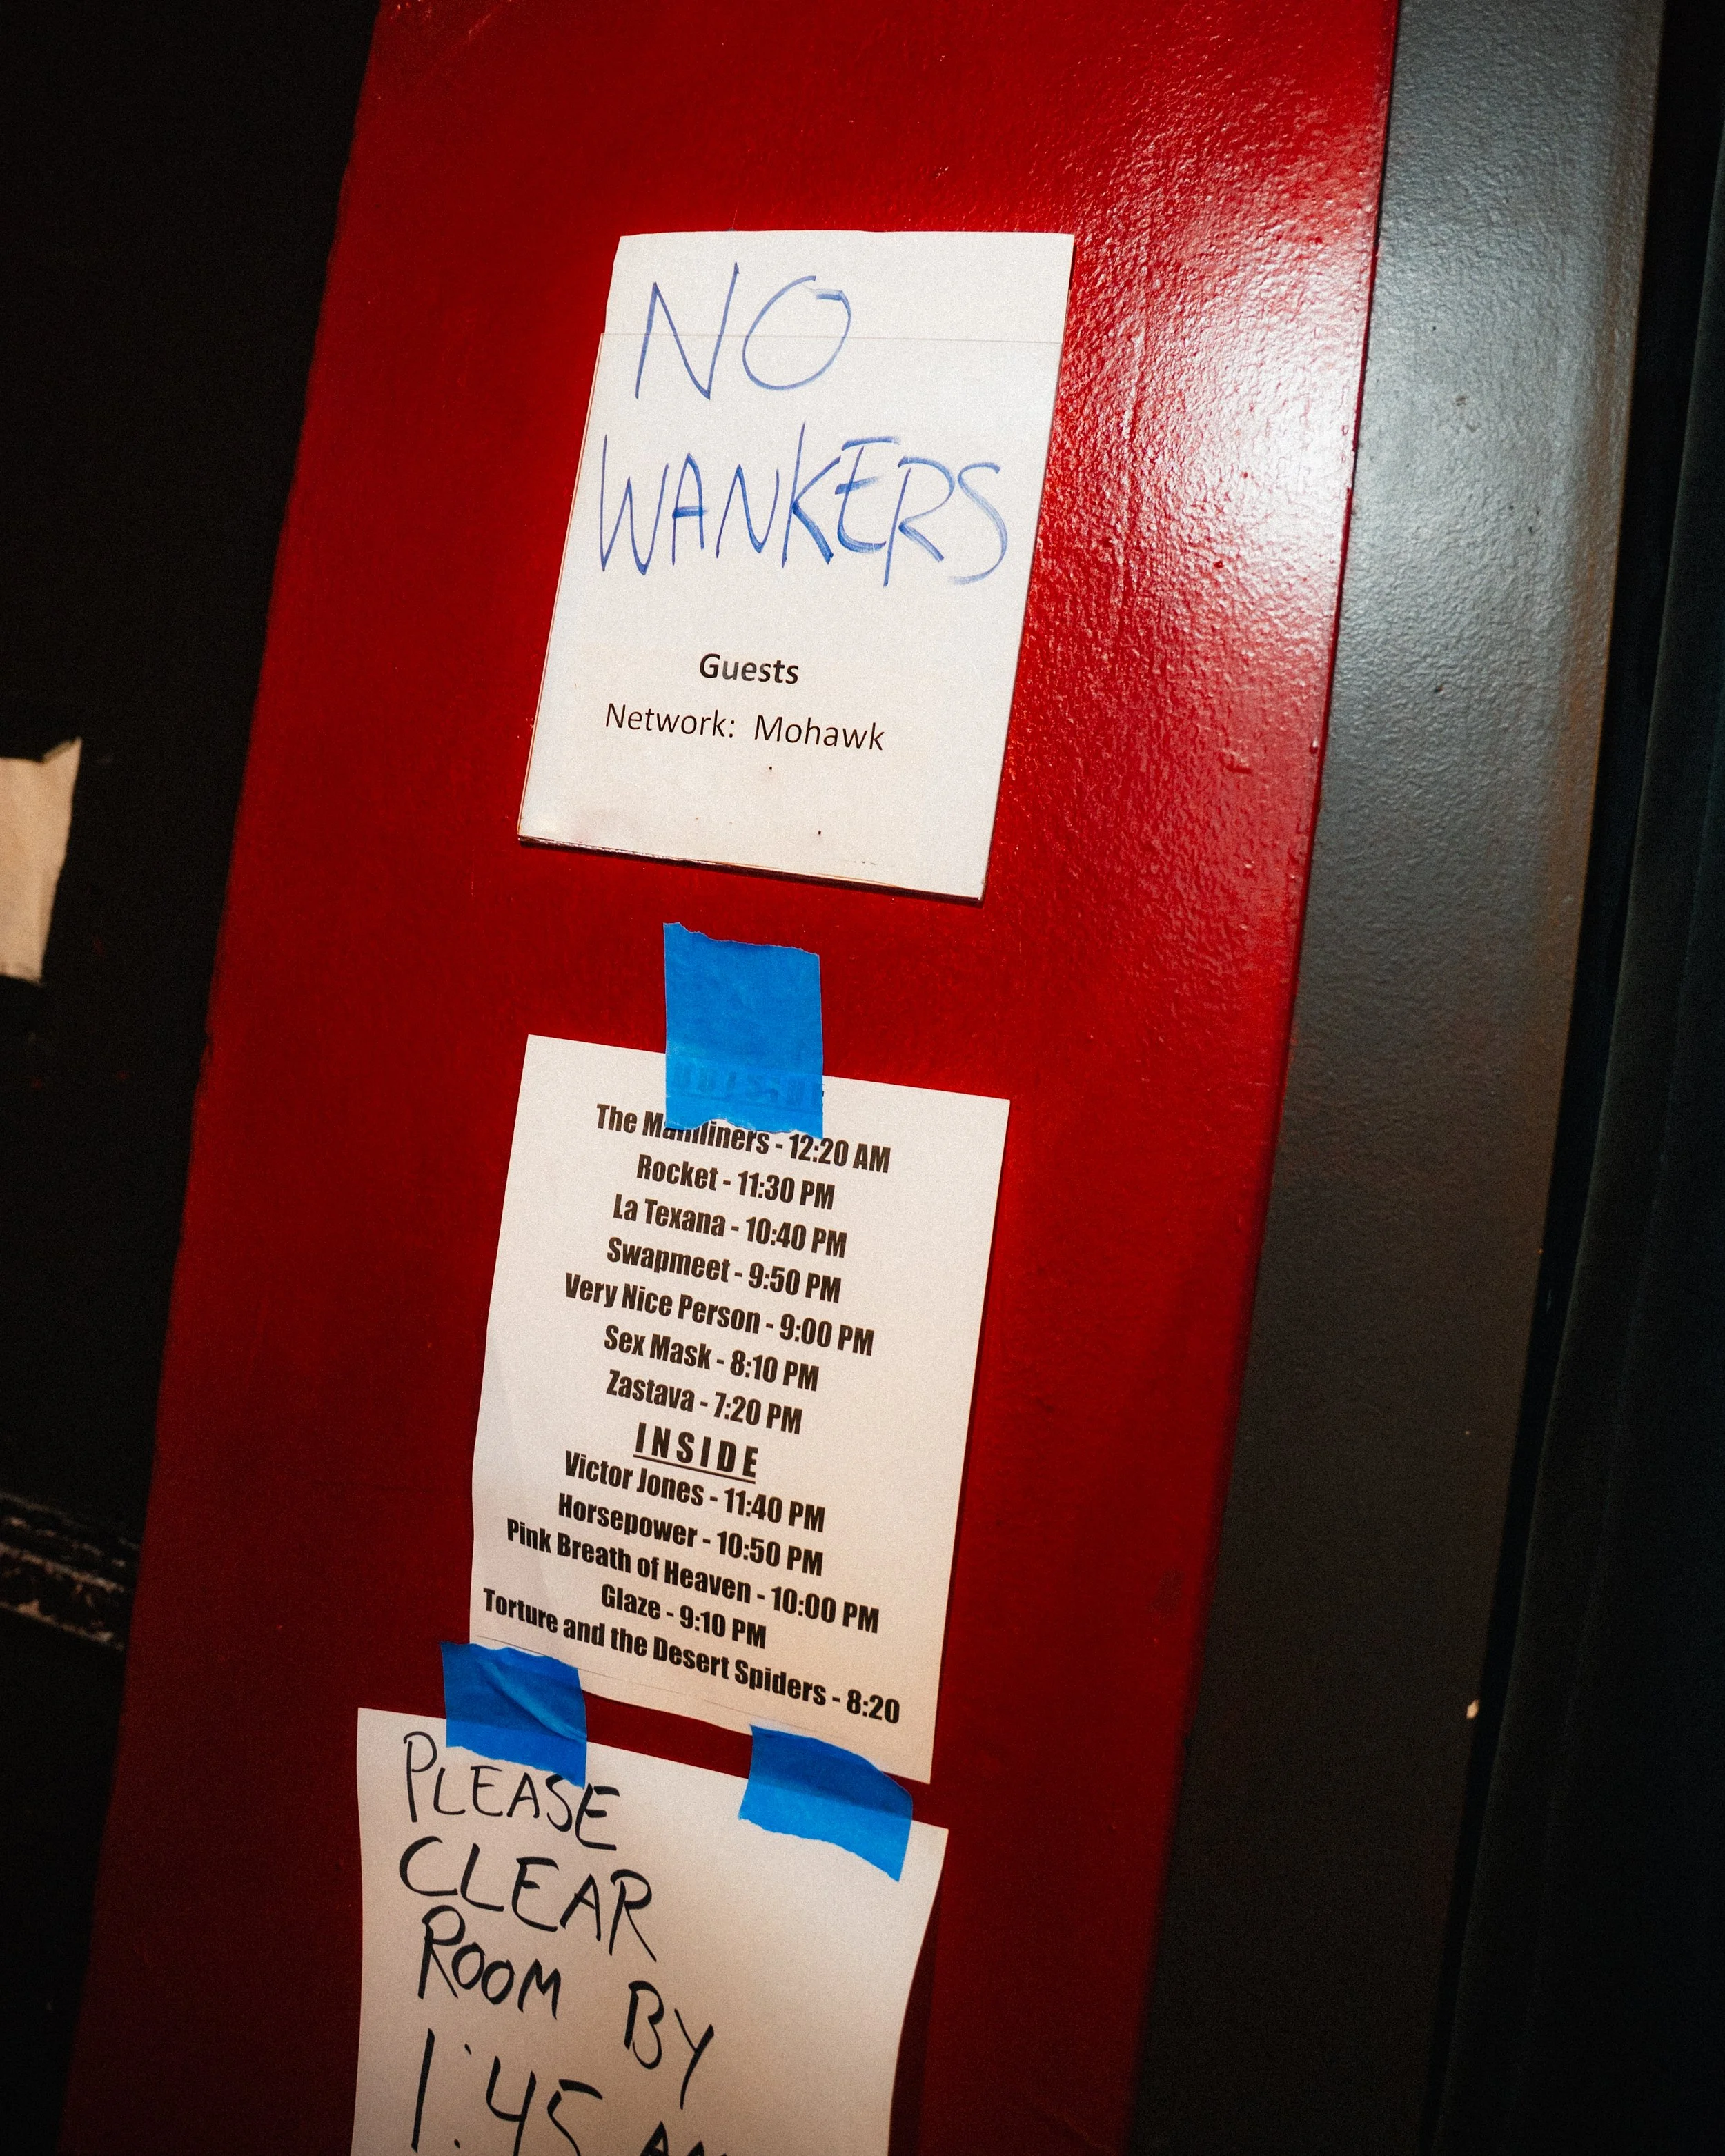 NO
WANKERS
Guests
Network: Mohawk
OUTSIDE
The Mainliners - 12:20 AM
Rocket - 11:30 PM
La Texana - 10:40 PM
Swapmeet - 9:50 PM
Very Nice Person - 9:00 PM
Sex Mask - 8:10 PM
Zastava - 7:20 PM
INSIDE
Victor Jones - 11:40 PM
Horsepower - 10:50 PM
Pink Breath of Heaven - 10:00 PM
Glaze - 9:10 PM
Torture and the Desert Spiders - 8:20
PLEASE
CLEAR
ROOM BY
1:45 AM